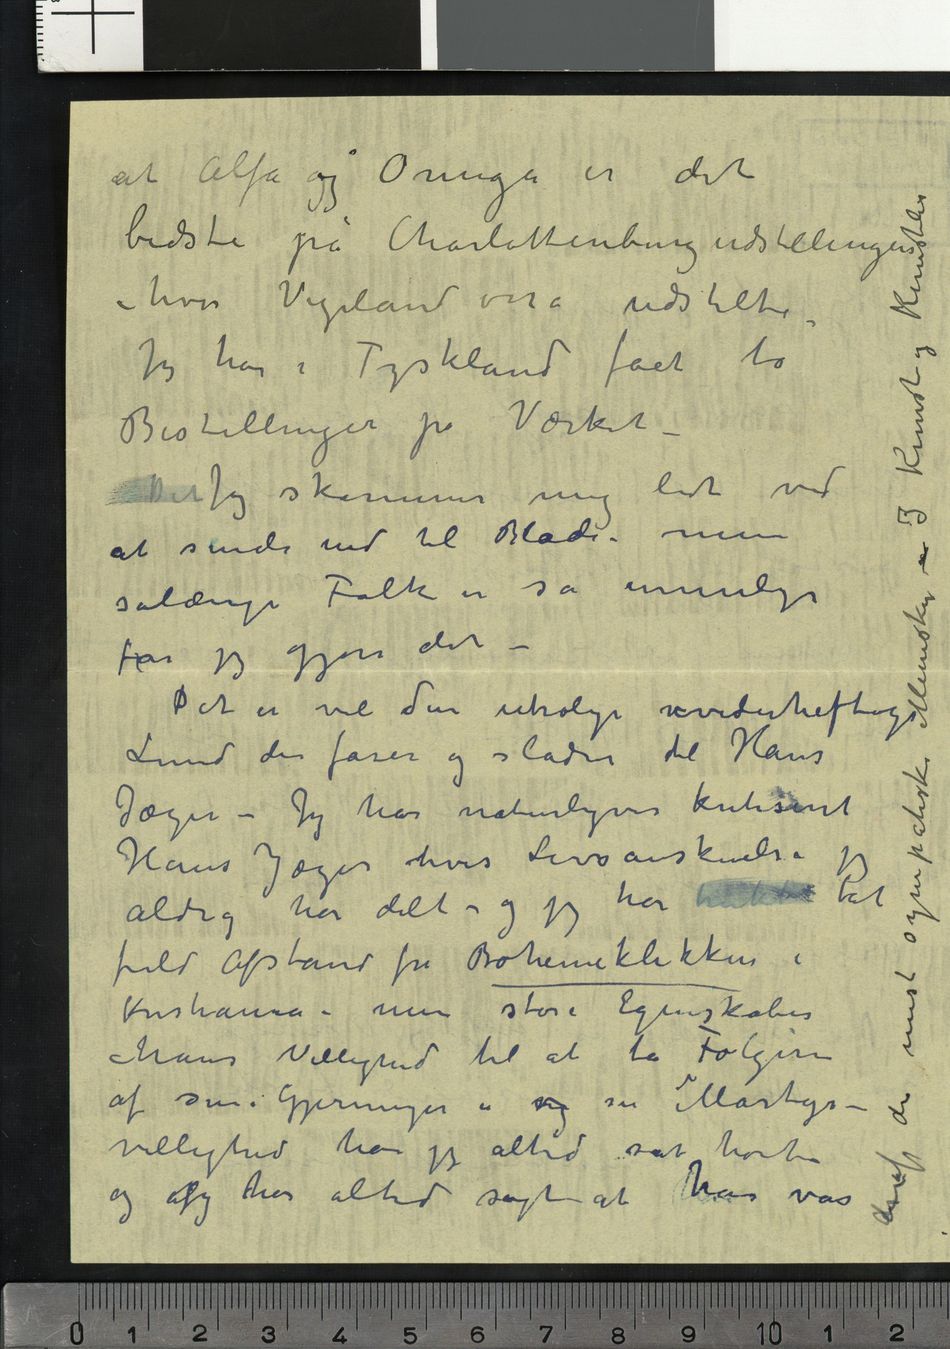 at Alfa og Omega er det
bedste på Charlottenburgudstillingen
– hvor Vigeland var udstillet.
Jeg har i Tyskland fået to
Bestillinger på Værket –
Det Jeg skammer mig lidt ved
at sende ind til Blade – men
salænge Folk er så umulige
får jeg gjøre det –
Det er vel den utrolige vederheftige
Lund der farer og sladrer til Hans
Jæger – Jeg har naturligvis kritiseret
Hans Jæger hvis Livsanskuelse jeg
aldrig har delt – og jeg har tat
fuld Afstand fra Bohemeklikken i
Kristiania – men store Egenskaber
– hans Villighed til at ta Følgerne
af sine Gjerninger – og sin Martyr-
villighed har jeg altid sat høit
og Jeg har altid sagt at han var
af de mest sympatiske Mennesker – I Kunst og Kunstler